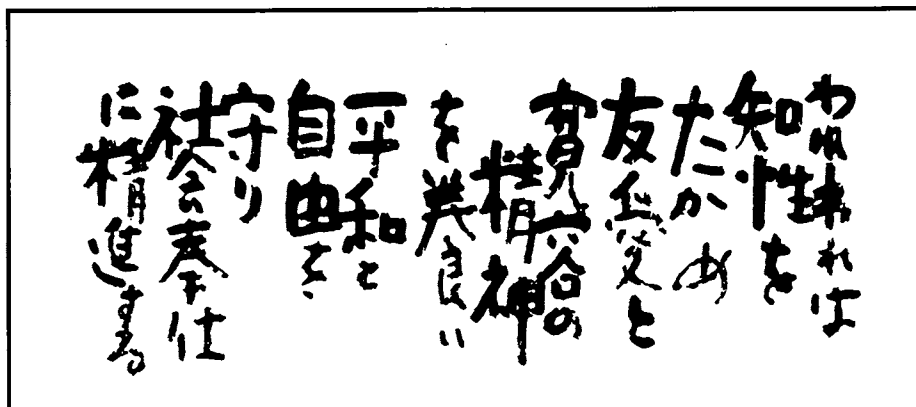 われわれは
知性を
たかめ
友愛と
寛容の
精神
を養い
平和と
自由を
守り
社会奉仕
に精進する